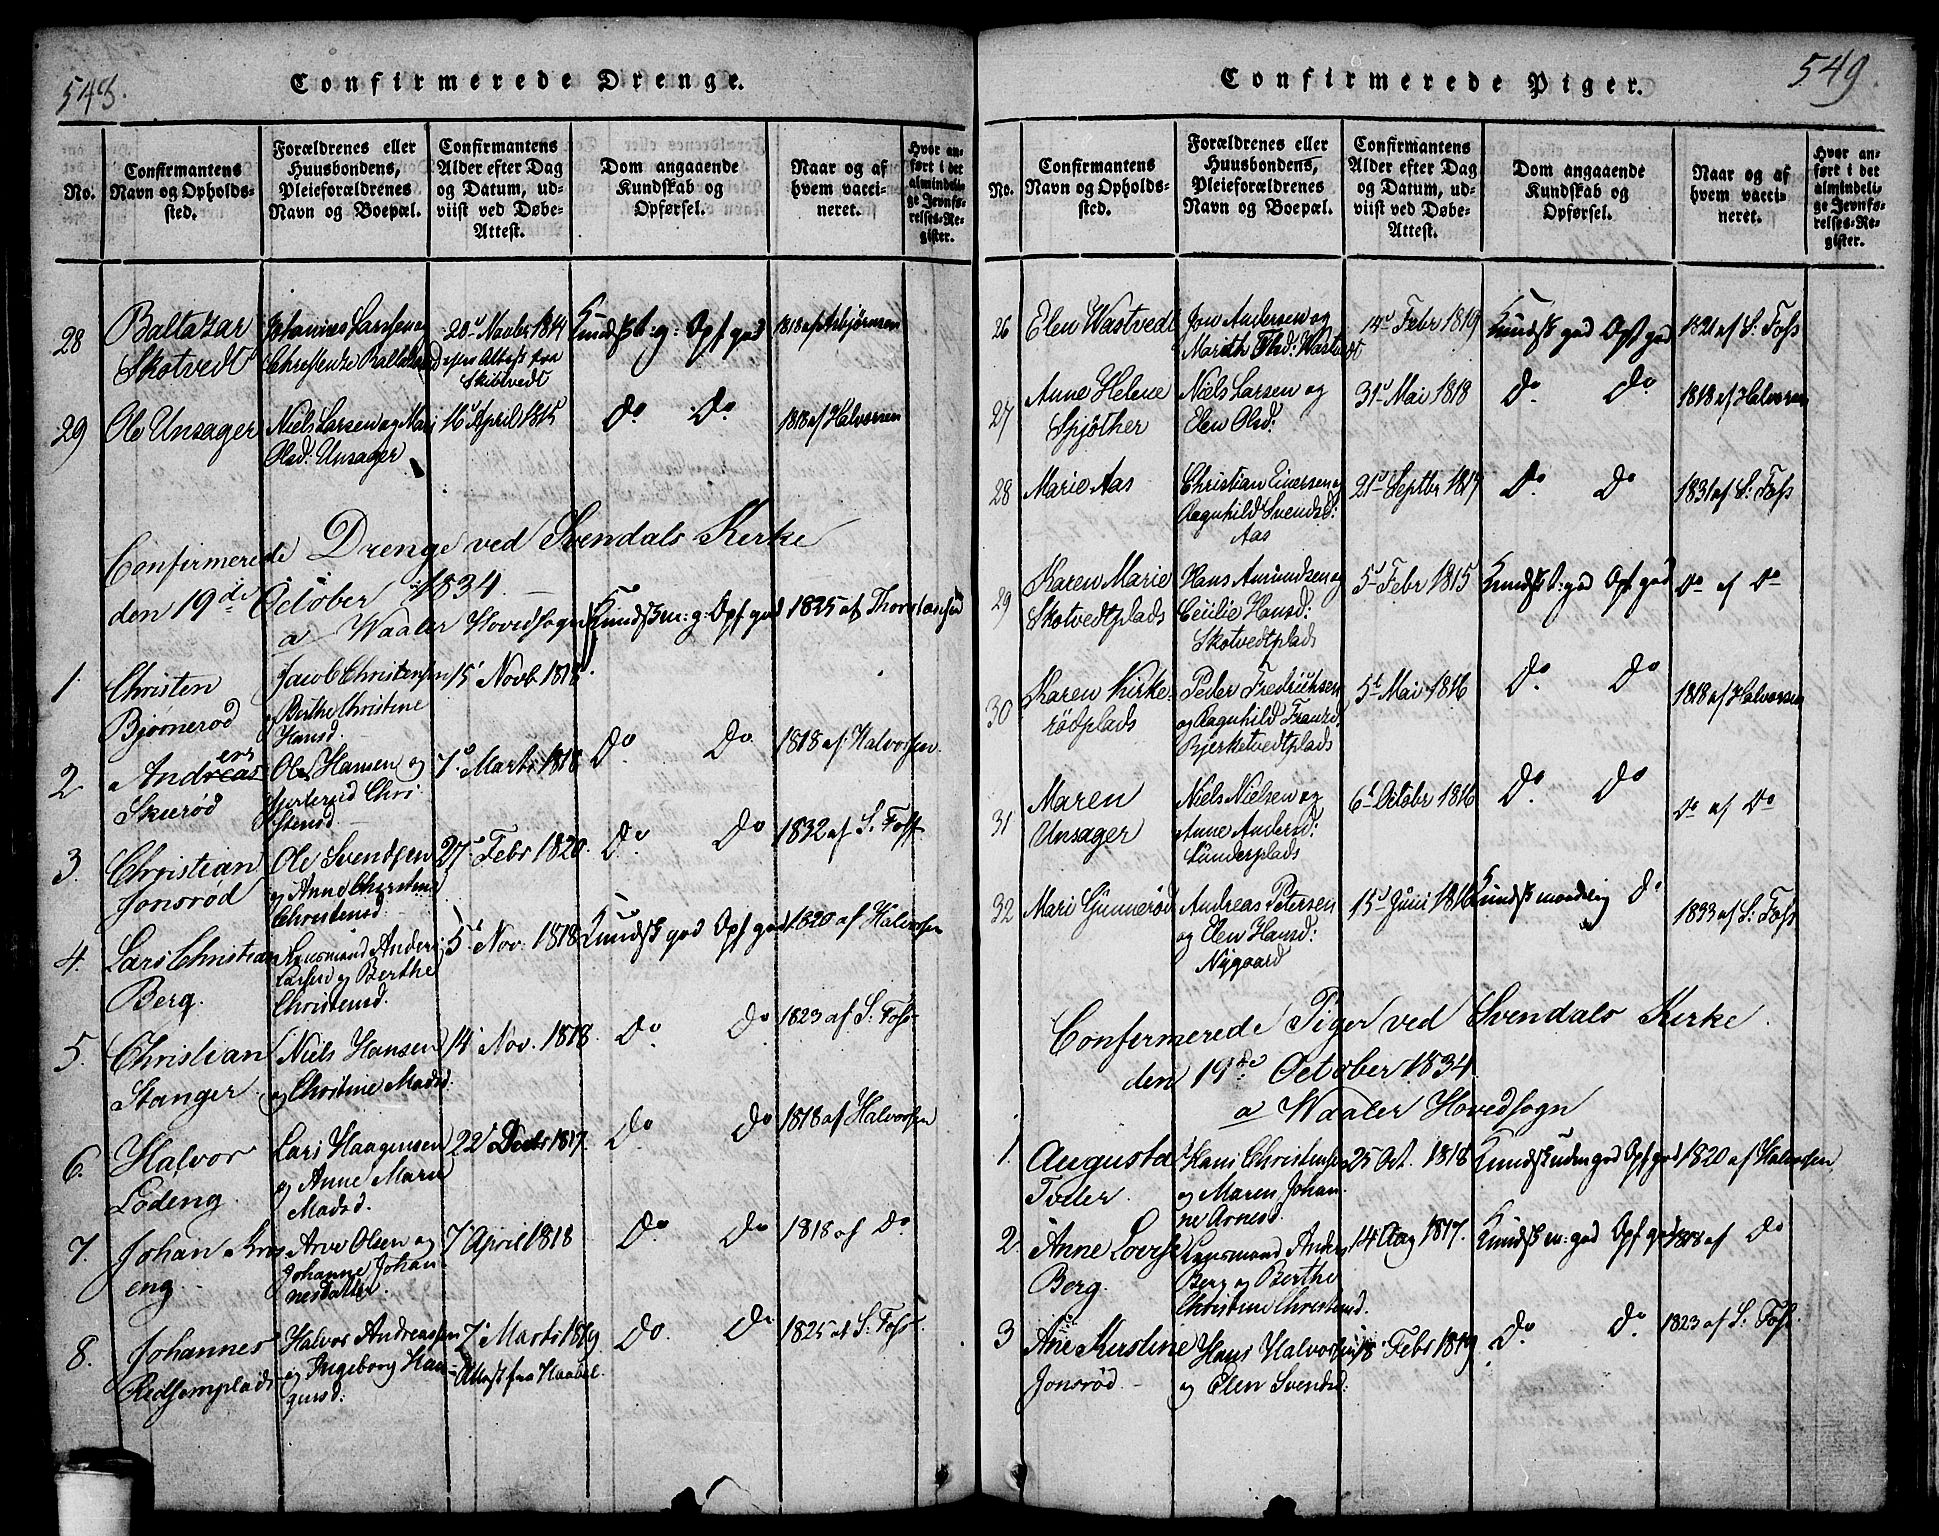 548.
Confirmerede Drenge.
No.
Confirmantens
Navn og Opholds-
sted.
Forældrenes eller
Huusbondens,
Pleieforældrenes
Navn og Boepæl.
Confirmantens
Alder efter Dag
og Datum, ud-
viist ved Døbe-
Attest.
Dom angaaende
Kundskab og
Opførsel.
Naar og af
hvem vacci-
neret.
Hvor an-
ført i det
almindeli-
ge Jevnfø-
relses-Re-
gister.
28 Baltazar Johannes Larsen og 20d Novbr 1814 Kundsk t: g: Opf god 1818 af Asbjørnsen
Skotvedt
Skibtvedt
29 Ole Unsager Niels Larsen og Mari 16d April 1815 Do Do 1818 af Halvorsen
Olsd: Unsager
Confirmerede Drenge ved Svendals Kirke
den 19de October 1834.
a Waaler Hovedsogn
1. Christen Jacob Christensen 15d Novb. 1818 Kundsk m: g: Opf god 1825 af
Bjørnerød og Berthe Christine
Hansd.
2. Andreas ers Ole Hansen og 7d Marts 1818 Do Do 1818 af Halvorsen.
Skuerød Chri-
stensd.
3. Christian Ole Svendsen 27d Febr 1820. Do Do 1832 af S. Foss
Jonsrød og Anne Christine
Christensd.
4. Lars Christian Lensmand Anders 5d Nov. 1818 Kundsk god Opf god 1820 af Halvorsen
Berg. Larsen og Berthe
Christensd.
5. Christian Niels Hansen 14d Nov. 1818. Do Do 1823 af S. Foss
Stanger og Christine Madsd.
6. Halvor Lars Haagensen 22d Decbr 1817. Do Do 1818 af Halvorsen
Lodeng og Anne Marie
Madsd.
7. Johan Arve Olsen og 7d April 1818 Do Do 1818 af Do
eng. Johanne Johan-
nesdatter.
8. Johannes Halvor Andreassen 7d Marts 1819 Do. Do 1825 af S. Foss
og Ingeborg Haa-
gensd: Attest fra Haabøl.
549.
Confirmerede Piger.
No.
Confirmantens
Navn og Opholds-
sted.
Forældrenes eller
Huusbondens,
Pleieforældrenes
Navn og Boepæl.
Confirmantens
Alder efter Dag
og Datum, ud-
viist ved Døbe-
Attest.
Dom angaaende
Kundskab og
Opførsel.
Naar og af
hvem vacci-
neret.
Hvor an-
ført i det
almindeli-
ge Jevnfø-
relses-Re-
gister.
26 Elen Wastvedt Jon Andersen og 14d Febr 1819 Kundsk god Opf god 1821 af S: Foss
Marith Olsd: Wastvedt
27 Anne Helene Niels Larsen og 31d Mai 1818 Do Do 1818 af Halvorsen
Spjøther Elen Olsd:
28 Marie Aas Christian Eversen og 21d Septbr 1817 Do Do 1831 af S: Foss
Ragnhild Svendsd:
Aas
29 Karen Marie Hans Amundsen og 5d Febr 1815 Kundsk t: god Opf god Do af Do
Skotvedtplads Cecilie Hansd:
Skotvedtplads
30 Karen Kirke- Peder Fredriksen 5d Mai 1816 Do Do 1818 af Halvorsen
rødplads og Ragnhild Fransd
Bjerketvedtplads
31 Maren Niels Nielsen og 6d Octobr 1816 Do Do Do af Do
Unsager Anne Andersd:
Sunderplads
32 Mari Gunnerød Andreas Petersen 15d Juni 1816 Kundsk maadelig Do 1833 af S: Foss
og Elen Hansd:
Nygaard
Confermerede Piger ved Svendals Kirke.
den 19de October 1834.
a Waaler Hovedsogn
1. Augusta Hans Christensen 25 Oct. 1818 Kundsk uden god Opf god 1820 af Halvorsen
Tveter. og Maren Johan-
ne Arnesd.
2. Anne Lensmand Anders 14 Aug 1817. Kundsk m: god Opf god 1818 af Do
Berg. Berg og Berthe
Christine Christensd.
3 Ane Kirstine Hans Halvorsen 18d Febr 1819 Do. Do. 1823 af S. Foss.
Jonsrød og Elen Svendsd: